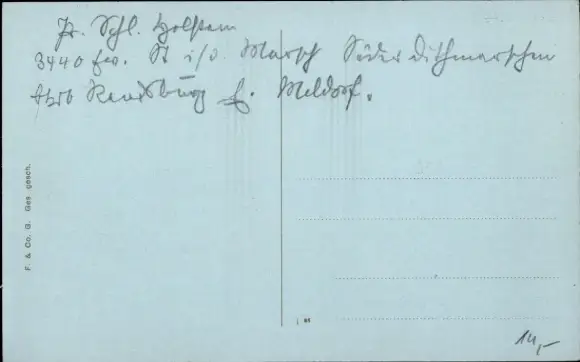 Pr. Schl. Holstein
3440 Ew. St i/d. Marsch Süder Dithmarschen
Rendsburg Meldorf.
F. & Co. G. Ges. gesch.
14,-